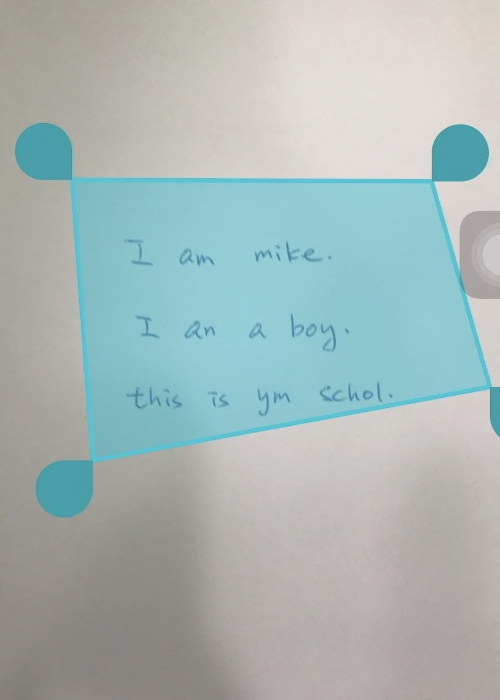 I am mike.
I an a boy.
this is ym schol.